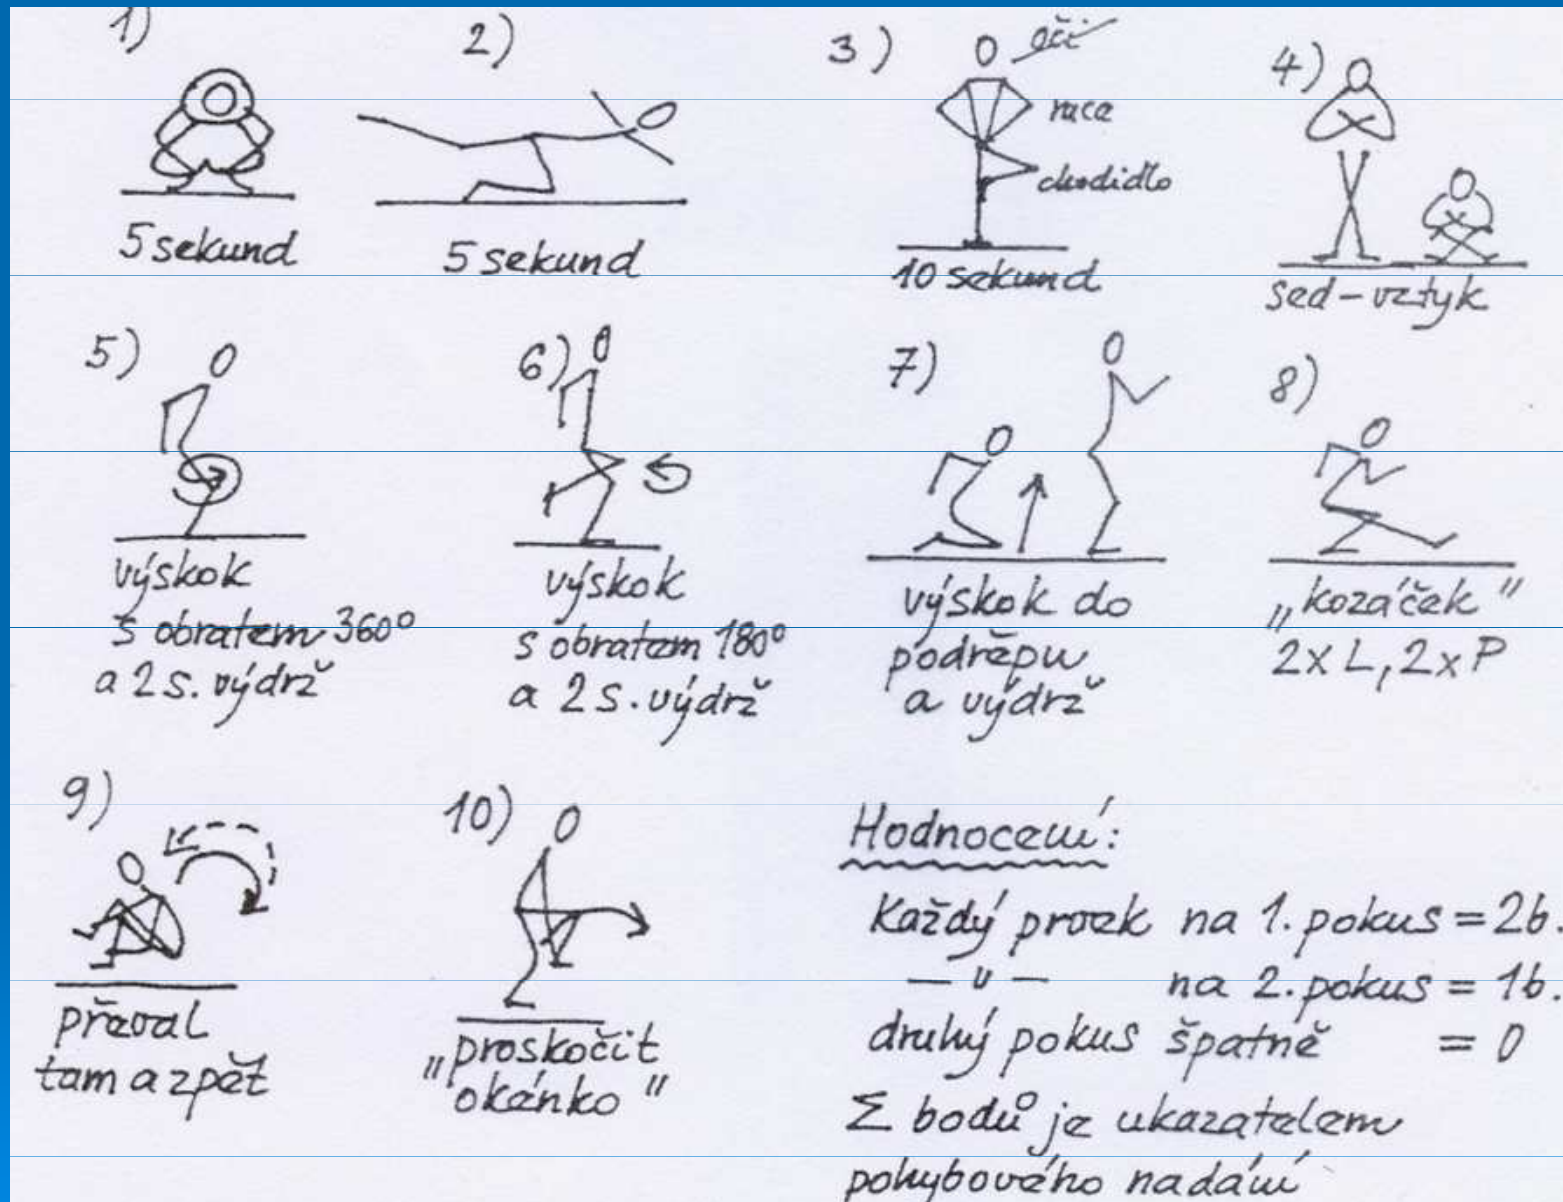 1)
5 sekund
2)
5 sekund
3)
oči
ruce
chodidlo
10 sekund
4)
sed - vztyk
5)
výskok
s obratem 360°
a 2 s. výdrž
6)
výskok
s obratem 180°
a 2 s. výdrž
7)
výskok do
podřepu
a výdrž
8)
„kozáček"
2x L, 2x P
9)
převal
tam a zpět
10)
„proskočit
okénko"
Hodnocení:
Každý prvek na 1. pokus = 2b.
— " — na 2. pokus = 1b.
druhý pokus špatně = 0
Σ bodů je ukazatelem
pohybového nadání